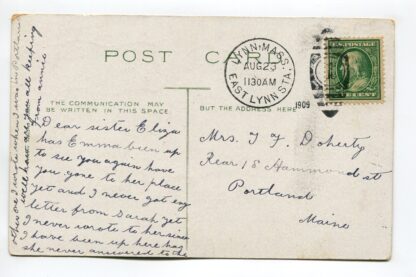 POST CARD
LYNN, MASS.
AUG 23
11 30 AM
1909
EAST LYNN STA.
U.S. POSTAGE
ONE CENT
THE COMMUNICATION MAY
BE WRITTEN IN THIS SPACE.
BUT THE ADDRESS HERE
Dear sister Eliza
has Emma been up
to see you again have
you gone to her place
yet and I never got eny
letter from Sarah yet
I never wrote to her since
I have been up here has
she never answered to the
other one I wrote when I was in Portland
well how are you all keeping
from annie
Mrs. T F Doherty
Rear 18 Hammond st
Portland
Maine